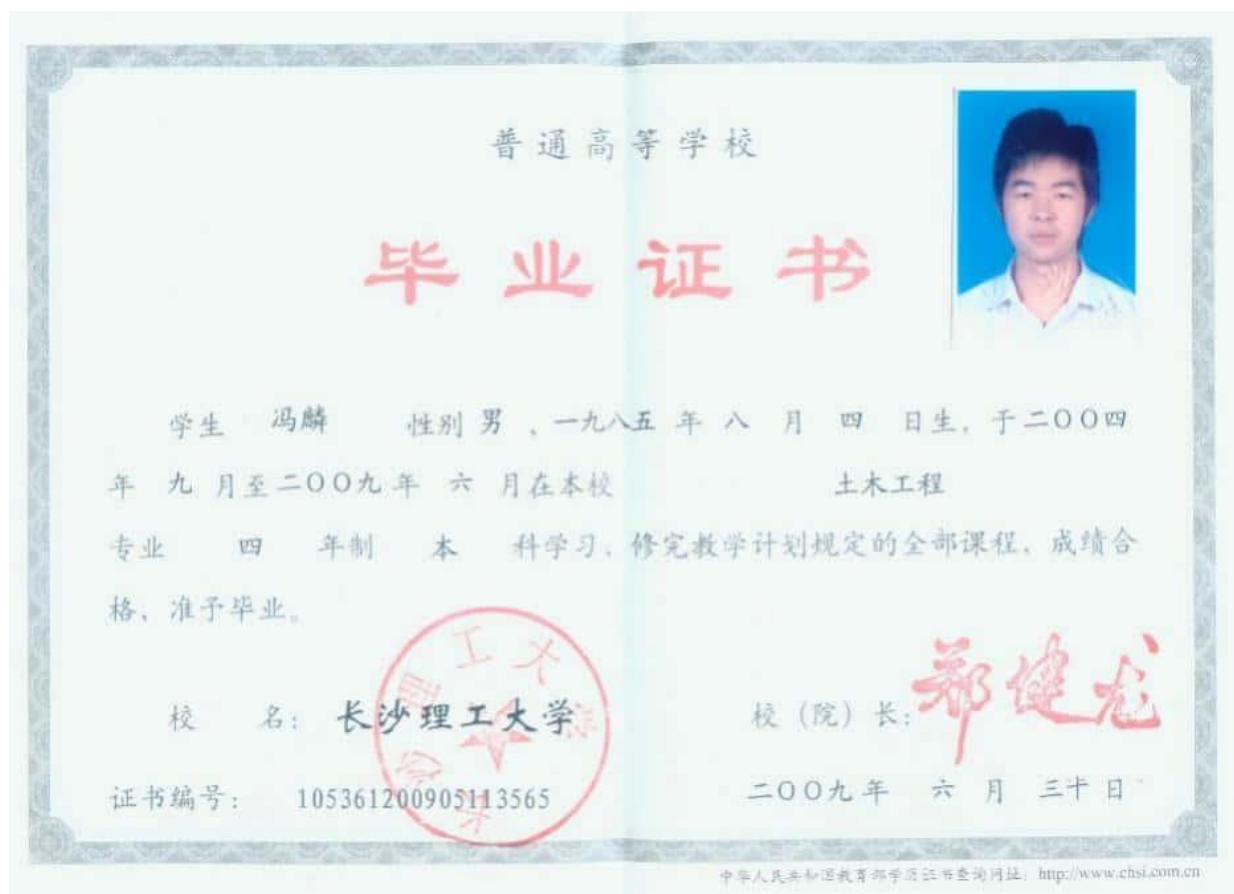 普通高等学校
毕业证书
学生 冯麟 性别 男 、一九八五 年 八 月 四 日生，于二〇〇四
年 九 月至二〇〇九年 六 月在本校 土木工程
专业 四 年制 本 科学习、修完教学计划规定的全部课程，成绩合
格、准予毕业。
长沙理工大学
校 名： 长沙理工大学 校（院）长：郑健龙
证书编号： 105361200905113565 二〇〇九年 六 月 三十 日
中华人民共和国教育部学历证书查询网址：http://www.chsi.com.cn